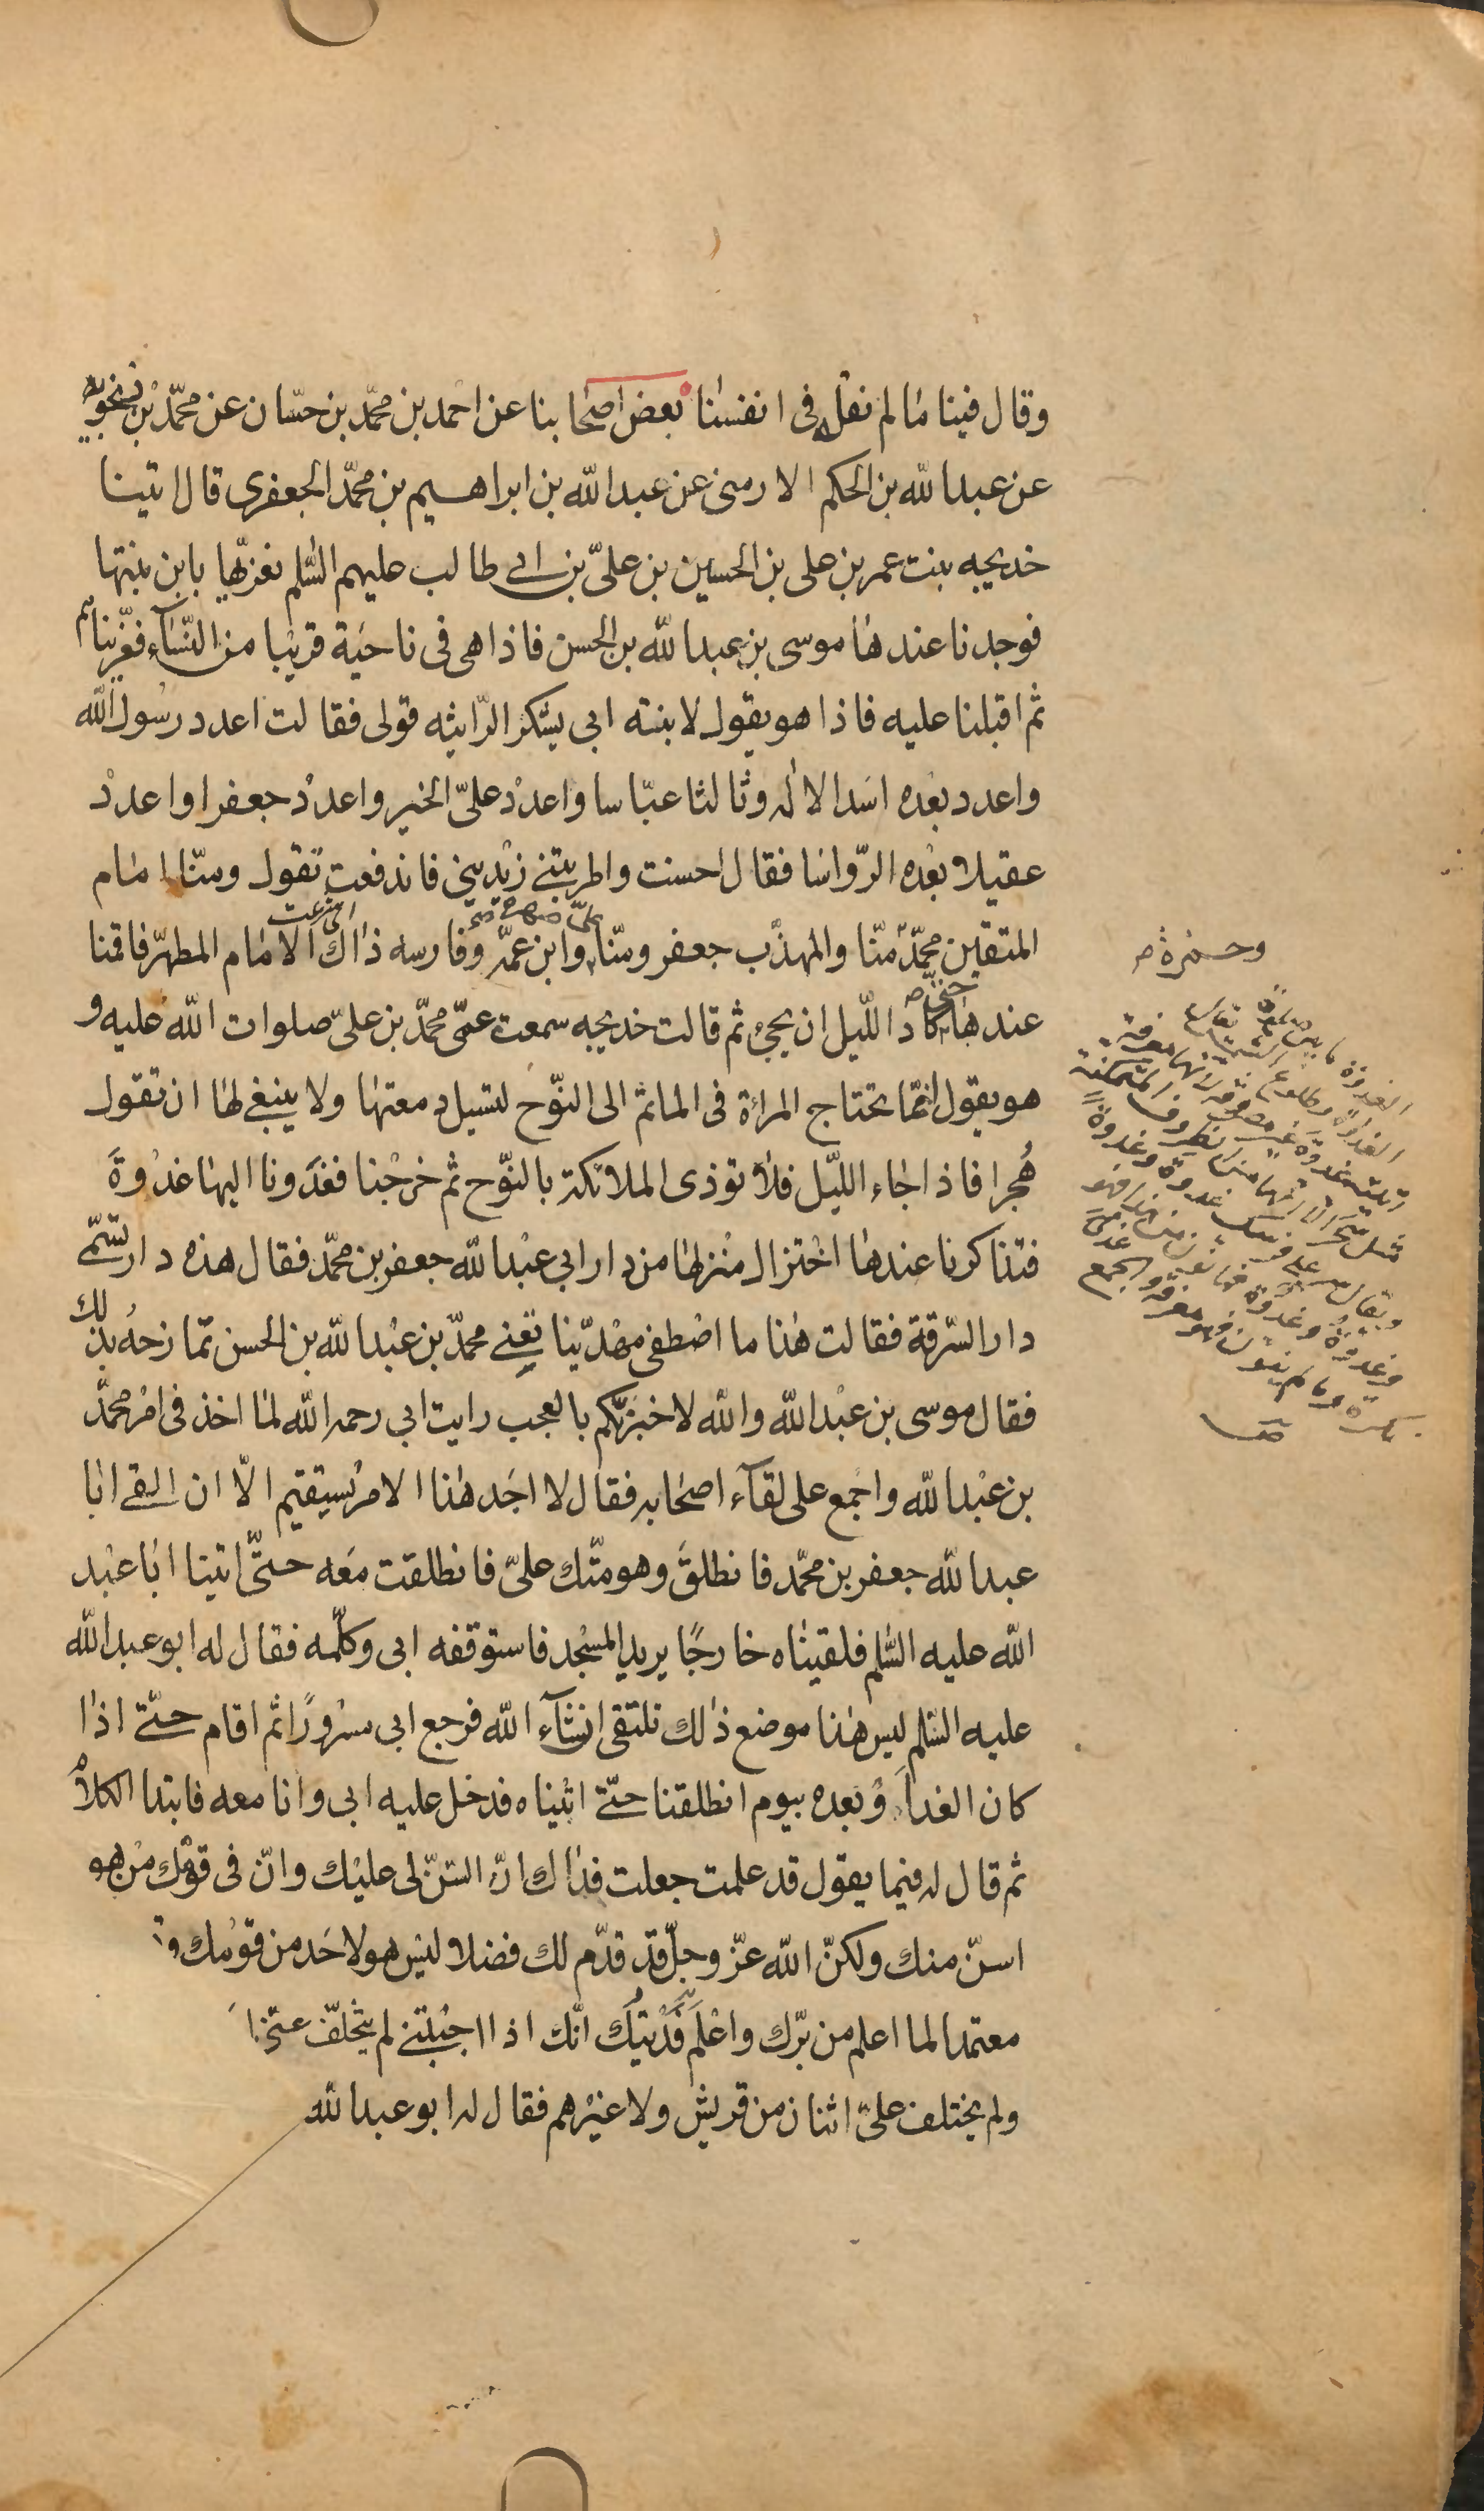 وقال فينا ما لم نقله فى انفسنا بعض اصحابنا عن احمد بن محمّد بن حسّان عن محمّد بن رنجويه
عن عبدالله بن الحكم الارمنى عن عبدالله بن ابراهيم بن محمّد الجعفرى قال اتينا
خديجه بنت عمر بن على بن الحسين بن علىّ بن ابى طالب عليهم السّلم نعزّيها بابن بنتها
فوجدنا عندها موسى بن عبدالله بن الحسن فاذا هى فى ناحية قريبا من النّسآء فعزّيناهم
ثم اقبلنا عليه فاذا هو يقول لابنته ابى يشكر الرّاثيه قولى فقالت اعدد رسول الله
واعدد بعده اسد الاله وثالثا عبّاسا واعدد علىّ الخير واعدد جعفرا واعدد
عقيلا بعده الرّواسا فقال احسنت واطربتنى زيدينى فاندفعت تقول ومنّا امام
المتقين محمّد منّا والمهذّب جعفر ومنّا علىّ صهره وابن عمّه وفارسه ذاك الامام المطهّر فاقمنا
عندها حتى كاد اللّيل ان يجئ ثم قالت خديجه سمعت عمّى محمّد بن علىّ صلوات الله عليه و
هو يقول انّما تحتاج المرأة فى الماتم الى النّوح لتسيل دمعتها ولا ينبغى لها ان تقول
هُجرا فاذا جاء اللّيل فلا توذى الملائكة بالنّوح ثم خرجنا فغدونا اليها غدوة
فتذاكرنا عندها اختزال منزلها من دار ابى عبدالله جعفر بن محمّد فقال هذه دار تسمّى
دار السّرقة فقالت هذا ما اصطفى مهديّنا تعنى محمّد بن عبدالله بن الحسن تمازحه بذلك
فقال موسى بن عبدالله والله لاخبرنّكم بالعجب رايت ابى رحمه الله لما اخذ فى امر محمّد
بن عبدالله واجمع على لقآء اصحابه فقال لا اجد هذا الامر يستقيم الّا ان القى ابا
عبدالله جعفر بن محمّد فانطلق وهو متّك علىّ فانطلقت معه حتّى اتينا ابا عبد
الله عليه السّلم فلقيناه خارجًا يريد المسجد فاستوقفه ابى وكلّمه فقال له ابو عبدالله
عليه السّلم ليس هذا موضع ذلك نلتقى انشآء الله فرجع ابى مسرورًا ثم اقام حتّى اذا
كان الغد او بعده بيوم انطلقنا حتّى اتيناه فدخل عليه ابى وانا معه فابتدا الكلام
ثم قال له فيما يقول قد علمت جعلت فداك انّ السّنّ لى عليك وانّ فى قومك من هو
اسنّ منك ولكنّ الله عزّ وجلّ قد قدّم لك فضلا ليس هو لاحد من قومك وقد
معتمدا لما اعلم من برّك واعلم فديتك انّك اذا اجبتنى لم يتخلّف عنّى
ولم يختلف علىّ اثنان من قريش ولا غيرهم فقال له ابو عبدالله
وحمزة
الغدوة ما بين صلوة
الغداة وطلوع الشمس يقال
غدوة غير مصروفة لانها معرفة
مثل سحر الا انها من الظروف المتمكنة
ويقال سير على فرسك غدوة وغدوةً
وغدوةُ وغدوةٌ فما نون من هذا فهو
نكرة وما لم ينون فهو معرفة والجمع غدىً